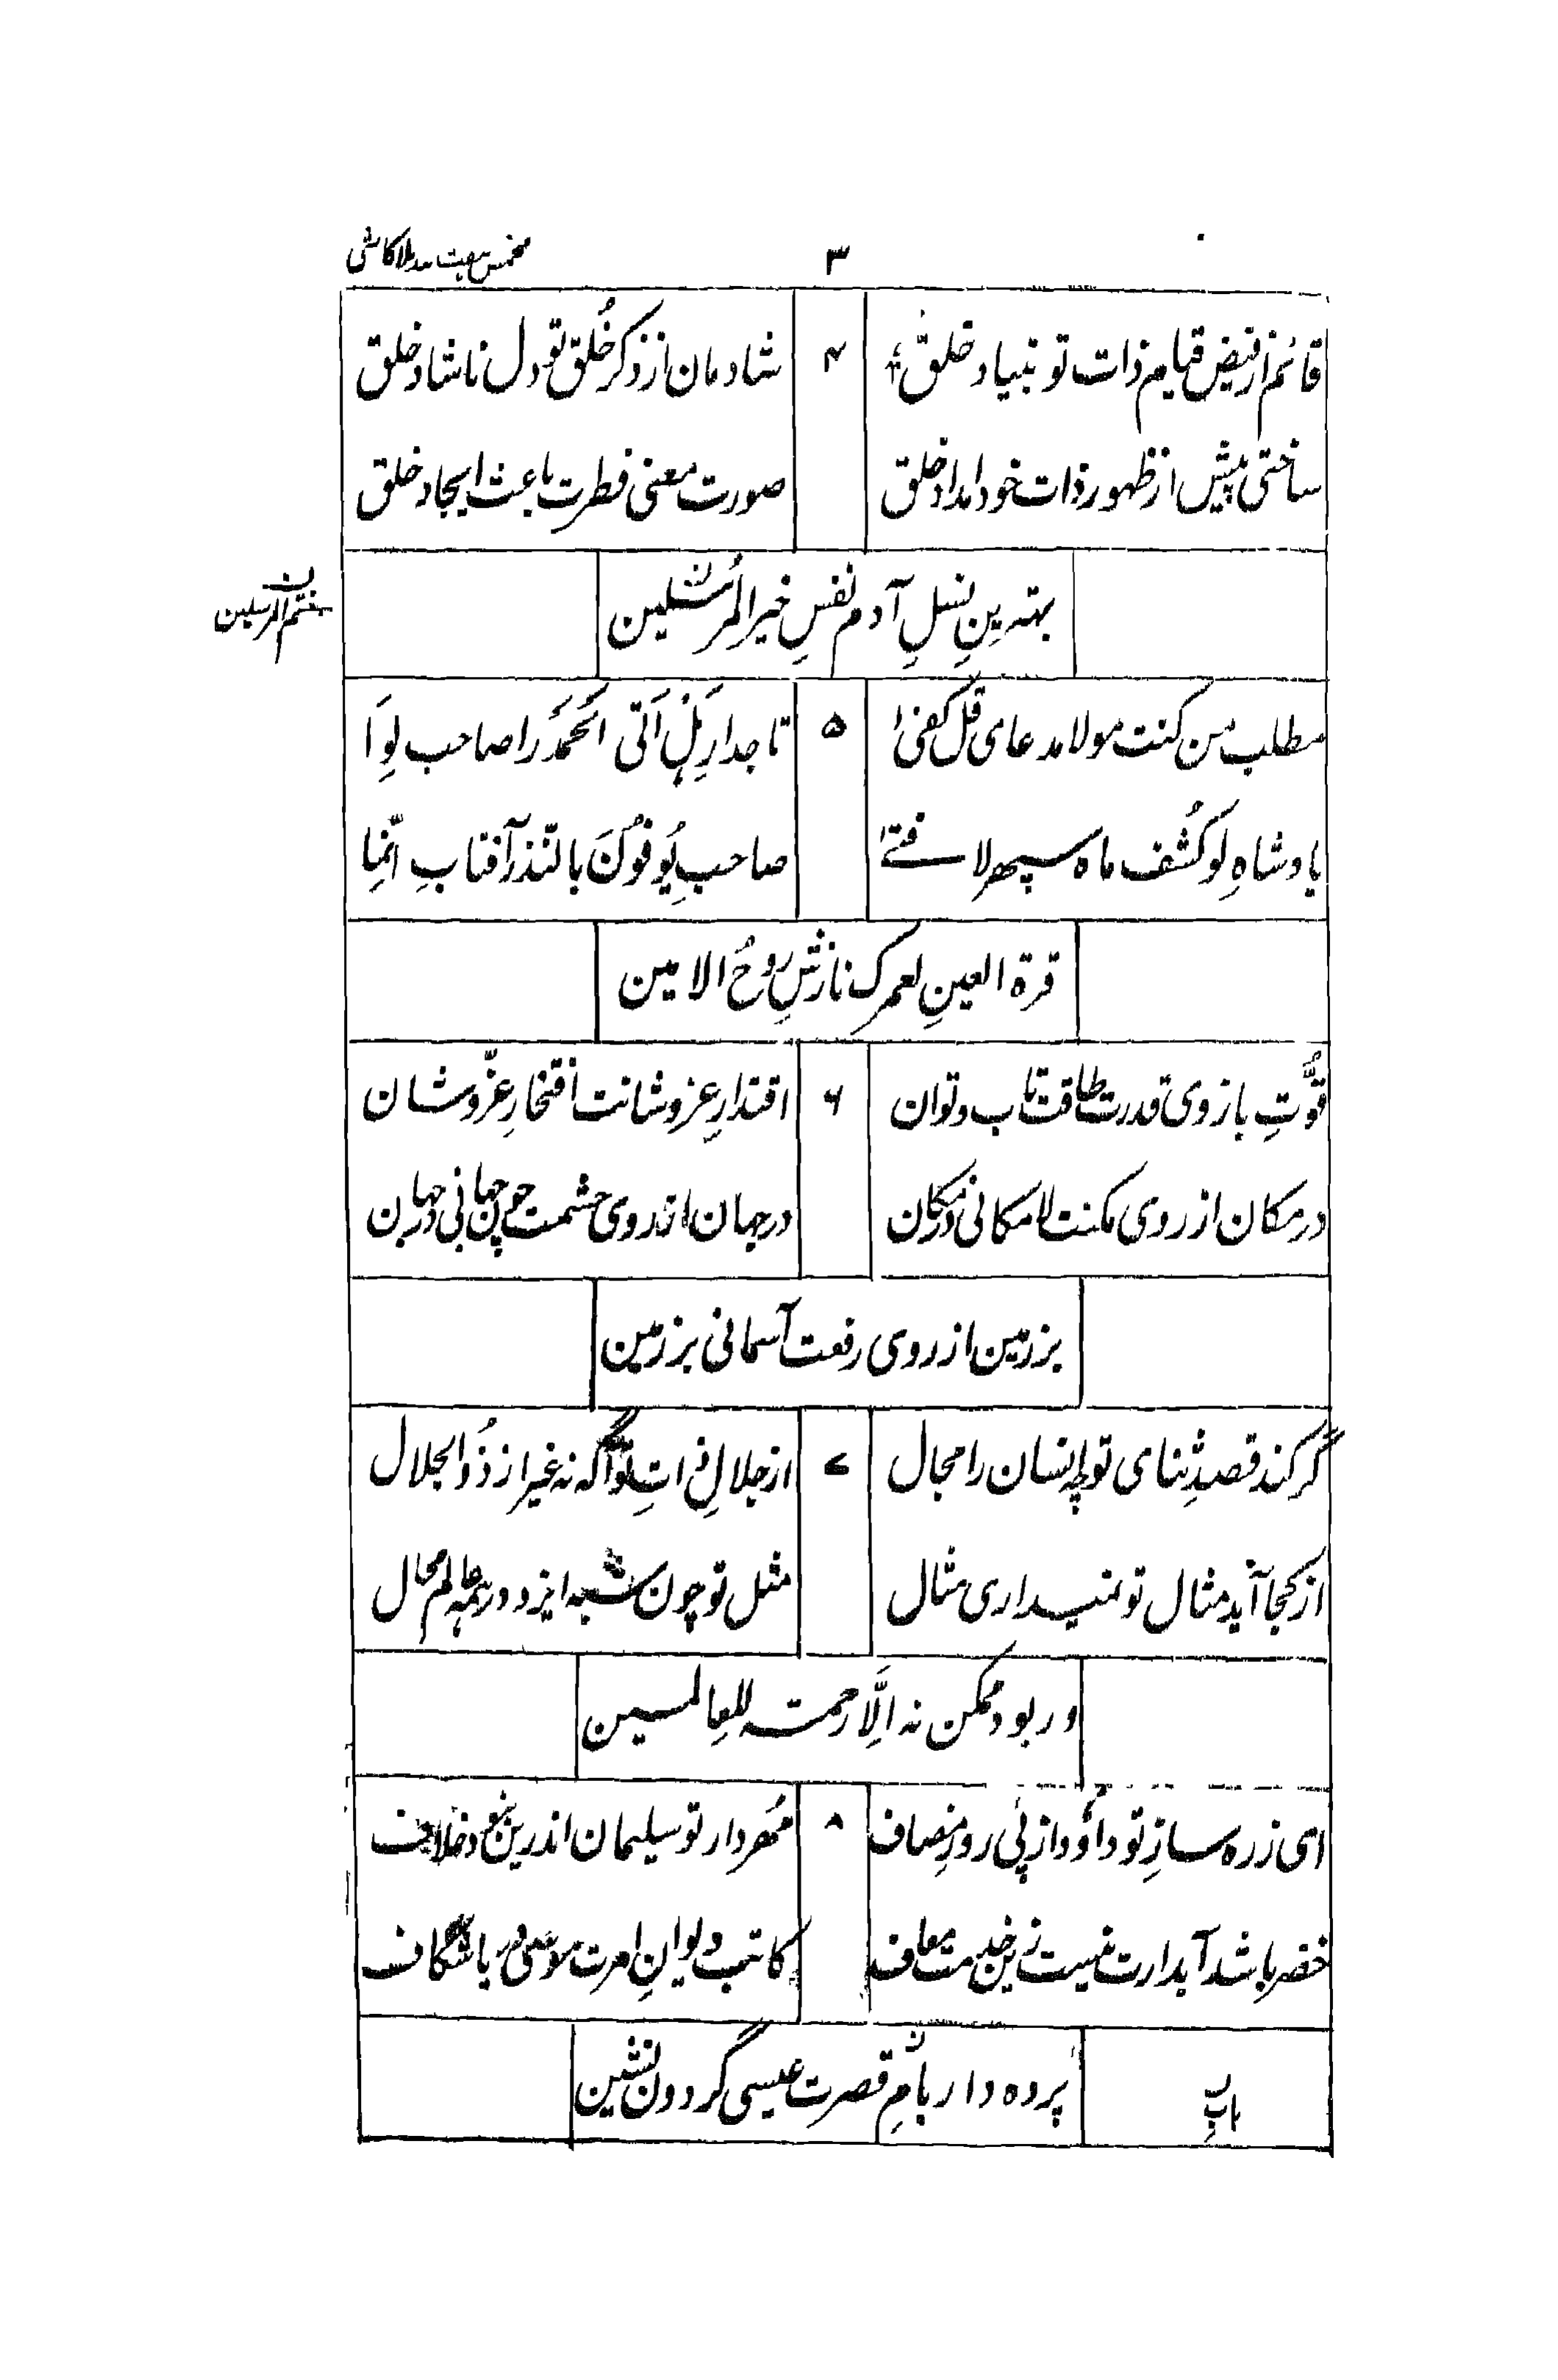 ۳ مخمس هفت بند ملا کاشی
قائم از فیض قیام ذات تو بنیاد خلق ۴ شادمان از ذکر خُلق تو دل ناشاد خلق
ساختی پیش از ظهور ذات خود امداد خلق صورت معنی فطرت باعث ایجاد خلق
بهترینِ نسلِ آدم نفسِ خیر المرُسَلین
ختم المرسلین
مطلب من کنت مولا مدعای قل کفیٰ ۵ تاجدارِ ہَلْ اَتٰی اَلحَمدُ را صاحب لِوَا
بادشاہِ لو کُشف ماہ سپہر لا فتےٰ صاحبِ یُوفُونَ بالنّذر آفتابِ اِنّما
قرة العینِ لعمرک نازشِ روحُ الامین
قوّتِ بازوی قدرت طاقت تاب و توان ۶ اقتدارِ عز و شانت افتخارِ عزّ و شان
در مکان از روی مکنت لامکانی در مکان در جهان از روی حشمت چون جهانی در جهان
بر زمین از روی رفعت آسمانی بر زمین
گر کند قصدِ ثنای تو چه انسان را مجال ۷ از جلالِ ذاتِ تو آگه نه غیر از ذُوالجلال
از کجا آید مثال تو نمیداری مثال مثل تو چون شبه ایزد در همه عالم محال
ور بود ممکن نه اِلَّا رحمتہ للعالمسین
ای زره سازِ تو داؤد از پَی روزِ مصاف ۸ مُهردار تو سلیمان اندرین نبود خلاف
خضر باشد آبدارت نیست زین خدمت معاف کاتب دیوانِ امرت موسیٰ دریا شگاف
پرده دار بامِ قصرت عیسی گردون نشین
بابِ